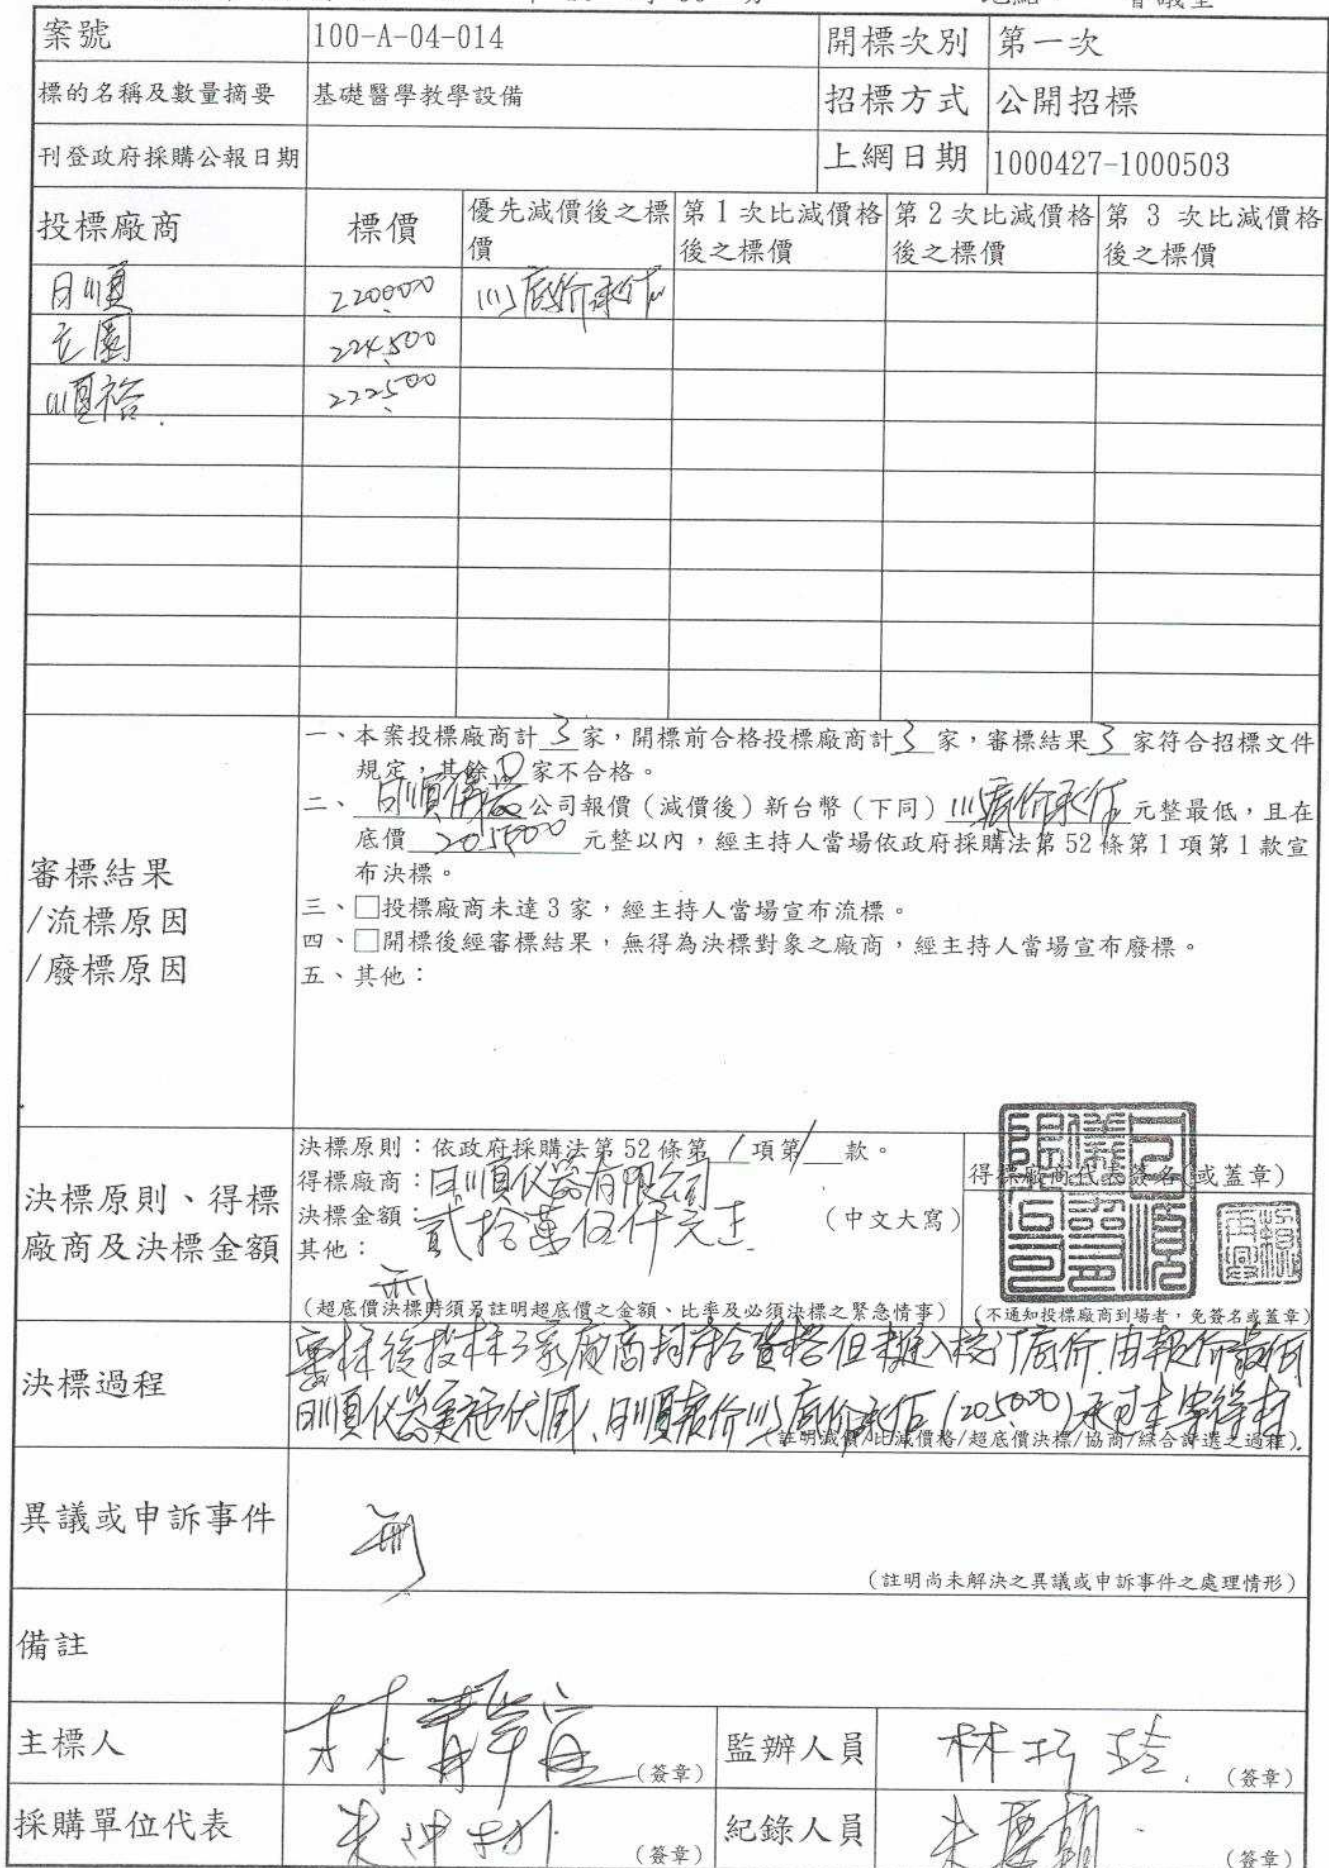 案號 100-A-04-014 開標次別 第一次
標的名稱及數量摘要 基礎醫學教學設備 招標方式 公開招標
刊登政府採購公報日期 上網日期 1000427-1000503
投標廠商 標價 優先減價後之標價 第1次比減價格後之標價 第2次比減價格後之標價 第3次比減價格後之標價
日順 220000 以底价承作
224,500
順裕 222500
審標結果
/流標原因
/廢標原因
一、本案投標廠商計 3 家,開標前合格投標廠商計 3 家,審標結果 3 家符合招標文件
規定,其餘 0 家不合格。
二、日順儀器公司報價(減價後)新台幣(下同)以底价承作元整最低,且在
底價 205000 元整以內,經主持人當場依政府採購法第52條第1項第1款宣
布決標。
三、□投標廠商未達3家,經主持人當場宣布流標。
四、□開標後經審標結果,無得為決標對象之廠商,經主持人當場宣布廢標。
五、其他:
決標原則、得標
廠商及決標金額
決標原則:依政府採購法第52條第 1 項第 1 款。
得標廠商:日順仪器有限公司
決標金額:貳拾萬伍仟元正 (中文大寫)
其他:
無
(超底價決標時須另註明超底價之金額、比率及必須決標之緊急情事)
得標廠商代表簽名(或蓋章)
(不通知投標廠商到場者,免簽名或蓋章)
決標過程
審标後投标3家廠商均符合資格但未進入核订底价.由報价最低
日順仪器實施优減、日順表价以底价承作(205000)
(註明減價/比減價格/超底價決標/協商/綜合評選之過程)
異議或申訴事件
無
(註明尚未解決之異議或申訴事件之處理情形)
備註
主標人 (簽章) 監辦人員 (簽章)
採購單位代表 (簽章) 紀錄人員 (簽章)